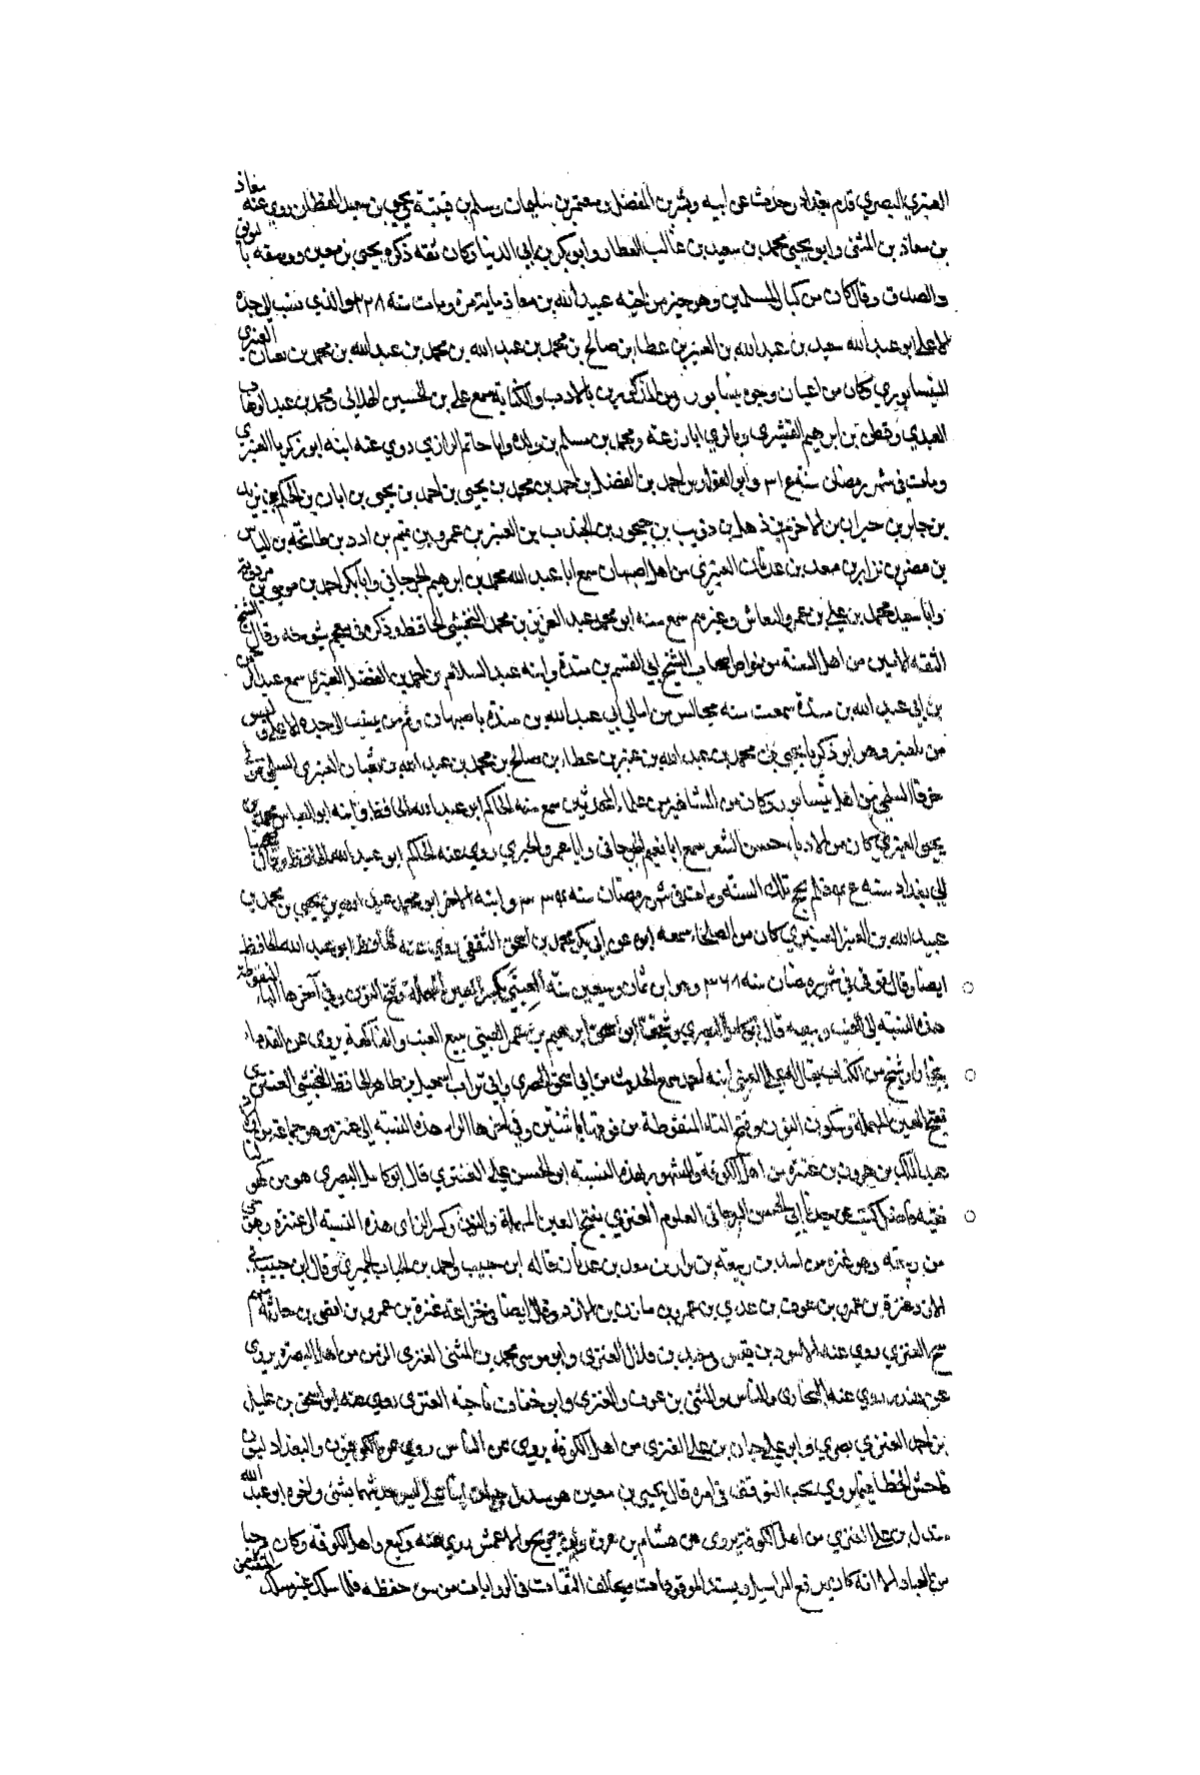 العنبري البصري قدم بغداد وحدث عن ابيه وبشر بن المفضل ومعتمر بن سليمان وسلم بن قتيبة يحيى بن سعيد القطان روي عنه معاذ
بن معاذ بن المثنى وابو يحيى محمد بن سعيد بن غالب العطار وابو بكر بن ابي الدنيا وكان ثقه ذكره يحيى بن معين ووصفه با
والصدق وقال كان من المسلمين وهو خير من اخيه عبيد الله بن معاذ ماية مرة ومات سنه ٢٢٨ والذي ينسب الى جده
الاعلى ابو عبد الله سعيد بن عبد الله بن العنبر بن عطا بن صالح بن محمد بن عبد الله بن محمد بن عبد الله بن محمد بن العنبري
النيسابوري كان من اعيان وجوه نيسابور ومن المذكورين بالادب والكتابة سمع علي بن الحسين الهلالي ومحمد بن عبد الوهاب
العبدي وقطن بن ابرهيم القشيري وبالري ابا زرعة ومحمد بن مسلم بن وارة وابا حاتم الرازي روي عنه ابنه ابو زكريا العنبري
ومات في شهر رمضان سنة وابو الفوارس احمد بن الفضل بن احمد بن محمد بن يحيى بن احمد بن يحيى بن ابان بن الحكم بن يزيد
بن جابر بن بن الاخزم بن ذهل بن ذويب بن بن الجندب بن العنبر بن عمرو بن تميم بن ادد بن طابخة بن الياس
بن مضر بن نزار بن معد بن عدنان العنبري من اهل اصبهان سمع ابا عبد الله محمد بن ابرهيم الجرجاني وابا بكر احمد بن موسى بن مردويه
وابا سعيد محمد بن علي بن عمرو النقاش وغيرهم سمع منه ابو محمد عبد العزيز بن محمد النخشبي الحافظ وذكره في معجم شيوخه وقال الشيخ
الثقه الامين من اهل السنه من خواص اصحاب الشيخ ابي القسم بن مندة وابنه عبد السلام بن احمد بن الفضل العنبري سمع عبد الرحمن
بن ابي عبد الله بن مندة سمعت منه مجالس من امالي ابي عبد الله بن مندة باصبهان وثم من ينسب الى جده الاعلى وليس
من بلعنبر وهو ابو زكريا يحيى بن محمد بن عبد الله بن عنبر بن عطا بن صالح بن محمد بن عبد الله بن العنبري السلمي
السلمي من اهل نيسابور وكان من المشاهير من علماء المحدثين سمع منه الحاكم ابو عبد الله الحافظ وابنه ابو العباس محمد بن
يحيى العنبري كان من الادباء حسن الشعر سمع ابا نعيم الجرجاني وابا عمرو الحيري روي عنه الحاكم ابو عبد الله الحافظ وقال
الى بغداد سنه فلم يحج تلك السنة ومات في شهر رمضان سنه وابنه الاخر ابو محمد عبد الله بن يحيى بن محمد بن
عبد الله بن العنبر العنبري كان من الصلحاء سمعه ابوه عن ابي بكر محمد بن اسحق الثقفي روي عنه الحافظ ابو عبد الله الحافظ
ايضا وقال توفي في شهر رمضان سنه ٣٦٨ وهو ابن ثمان وسبعين سنة العنبي بكسر العين المهملة وفتح النون وفي آخرها الباء المنقوطة
هذه النسبة الى العنب وبيعه قال ابو كامل البصري شيخنا ابو اسحق ابرهيم بن عمر العنبي يبيع العنب والفاكهة يروي عن القدماء
بخارا وشيخ من يقال له علي العنبي ابنه احمد سمع الحديث من ابي اسحق المصري وابي تراب اسمعيل بن طاهر الحافظ النخشبي العنتري
بفتح العين المهملة وسكون النون وفتح التاء المنقوطة من فوقها باثنتين وفي آخرها الراء هذه النسبة الى عنترة وهو جماعة
عبد الملك بن هرون بن عنترة من اهل الكوفة والمشهور بهذه النسبة ابو الحسن علي العنتري قال ابو كامل البصري هو من
فقيه فاضل كتبت عن ابي الحسن العلوم العنزي بفتح العين المهملة والنون وكسر الزاى هذه النسبة الى عنزة وهو حي
من ربيعة وهو عنزة من اسد بن ربيعة بن نزار بن معد بن عدنان قاله ابن حبيب واحمد بن الحباب الحميري وقال ابن حبيب في
الازد عنزة بن عمرو بن عوف بن عدي بن عمرو بن مازن بن الازد وقال ايضا في خزاعة عنزة بن عمرو بن افصى بن حارثة منهم
العنزي روي عنه الاسود بن قيس بن هلال العنزي وابو موسى محمد بن المثنى العنزي الزمن من اهل البصرة يروي
عن روي عنه البخاري والناس والمثنى بن عوف العنزي وابو خفاف ناجية العنزي روي عنه ابو اسحق بن عليل
بن احمد العنزي بصري وابو علي حبان بن علي العنزي من اهل الكوفة يروي عن الناس روي عنه الكوفيون والبغداديون
فاحش الخطا فيما يروي يجب التوقف في امره قال يحيى بن معين هو مندل وحبان ابنا علي ليس حديثهما بشئ واخوه ابو عبد الله
مندل بن علي العنزي من اهل الكوفة يروي عن هشام بن عروة وابن جريج والاعمش روي عنه وكيع واهل الكوفة وكان
من العباد الا انه كان يرفع المراسيل ويسند الموقوفات ويخالف الثقات في الروايات من سوء حفظه فلما سلك غير مسلك المتقنين